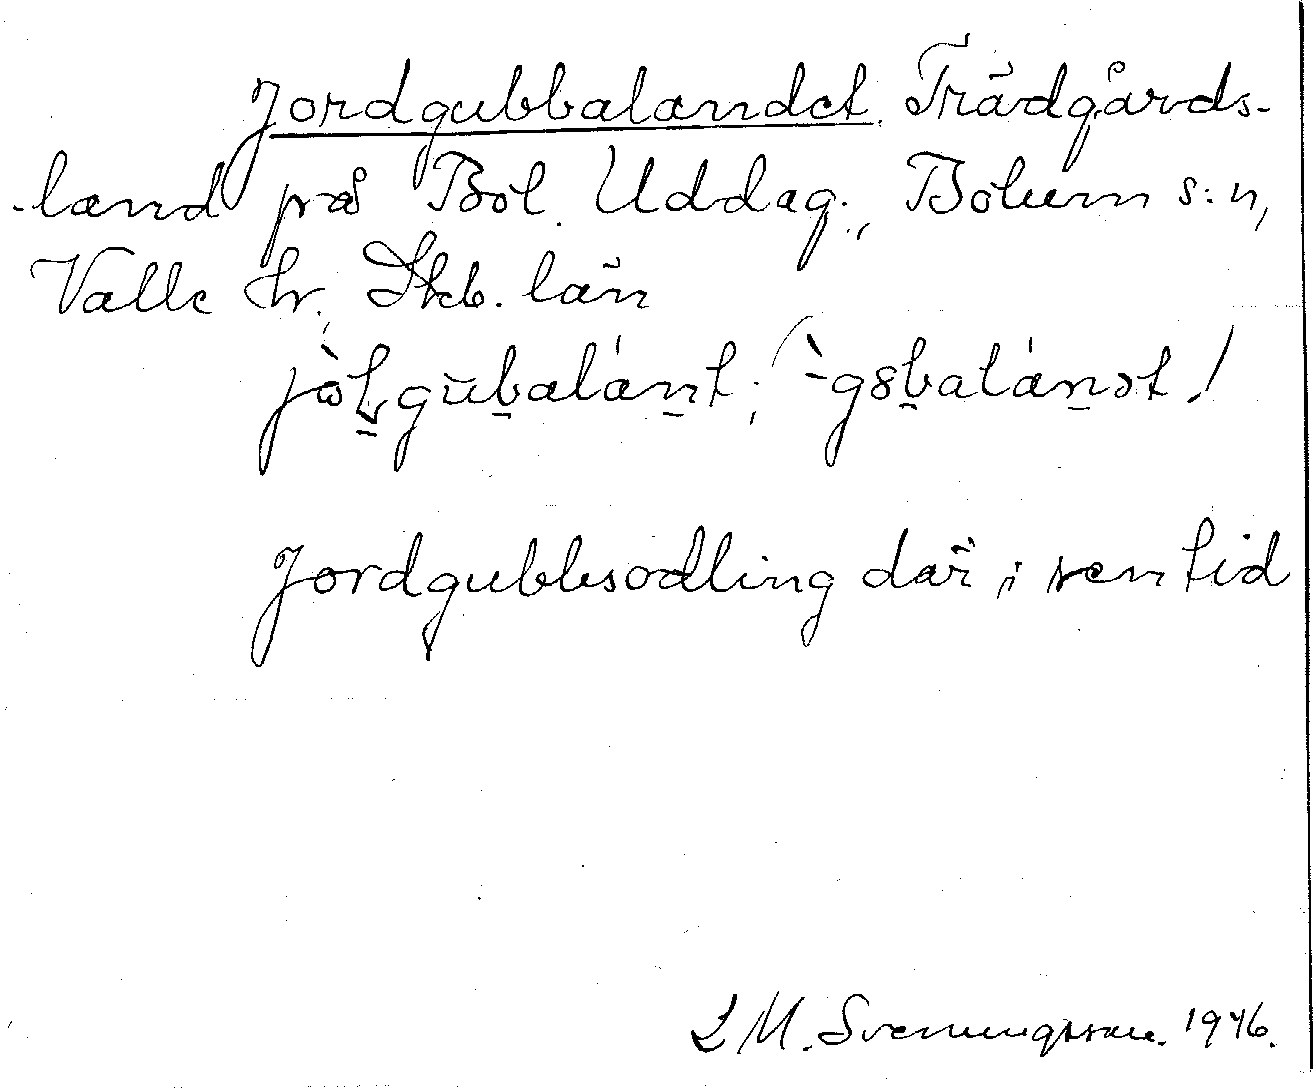 Jordgubbalandet. Trädgårds-
land på Böl. Uddag., Bolum s:n,
Valle hr. Skb. län
Jordgubbsodling där i sen tid
L M. Svenungsson. 1946.